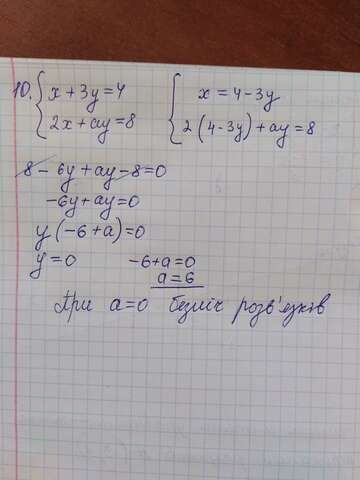 10. { x + 3y = 4 { x = 4 - 3y
2x + ay = 8 2(4 - 3y) + ay = 8
8 - 6y + ay - 8 = 0
-6y + ay = 0
y(-6 + a) = 0
y = 0 -6 + a = 0
a = 6
При a = 0 безліч розв'язків